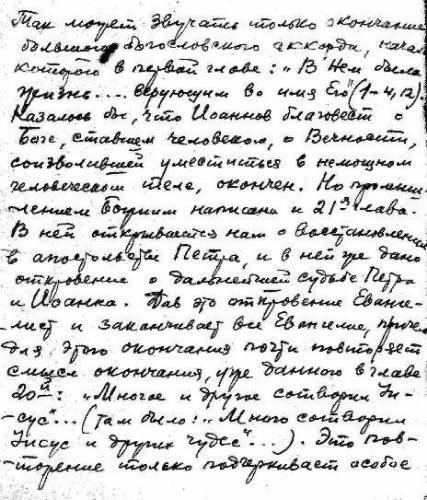 Так может звучать только окончание
большого богословского аккорда, начало
которого в первой главе: „В Нем была
жизнь.... верующим во имя Его" (1-4, 12).
Казалось бы, что Иоаннов благовест о
Боге, ставшем человеком, о Вечности,
соизволившей уместиться в немощном
человеческом теле, окончен. Но промыш-
лением Божиим написана и 21ая глава.
В ней открывается нам о восстановлении
в апостольстве Петра, и в ней же дано
откровение о дальнейшей судьбе Петра
и Иоанна. Дав это откровение Еванге-
-лист и заканчивает все Евангелие, причем
для этого окончания почти повторяет
смысл окончания, уже данного в главе
20й: „Многое и другое сотворил Ии-
сус"... (там было: „Много сотворил
Иисус и других чудес"...). Это пов-
-торение только подчеркивает особое